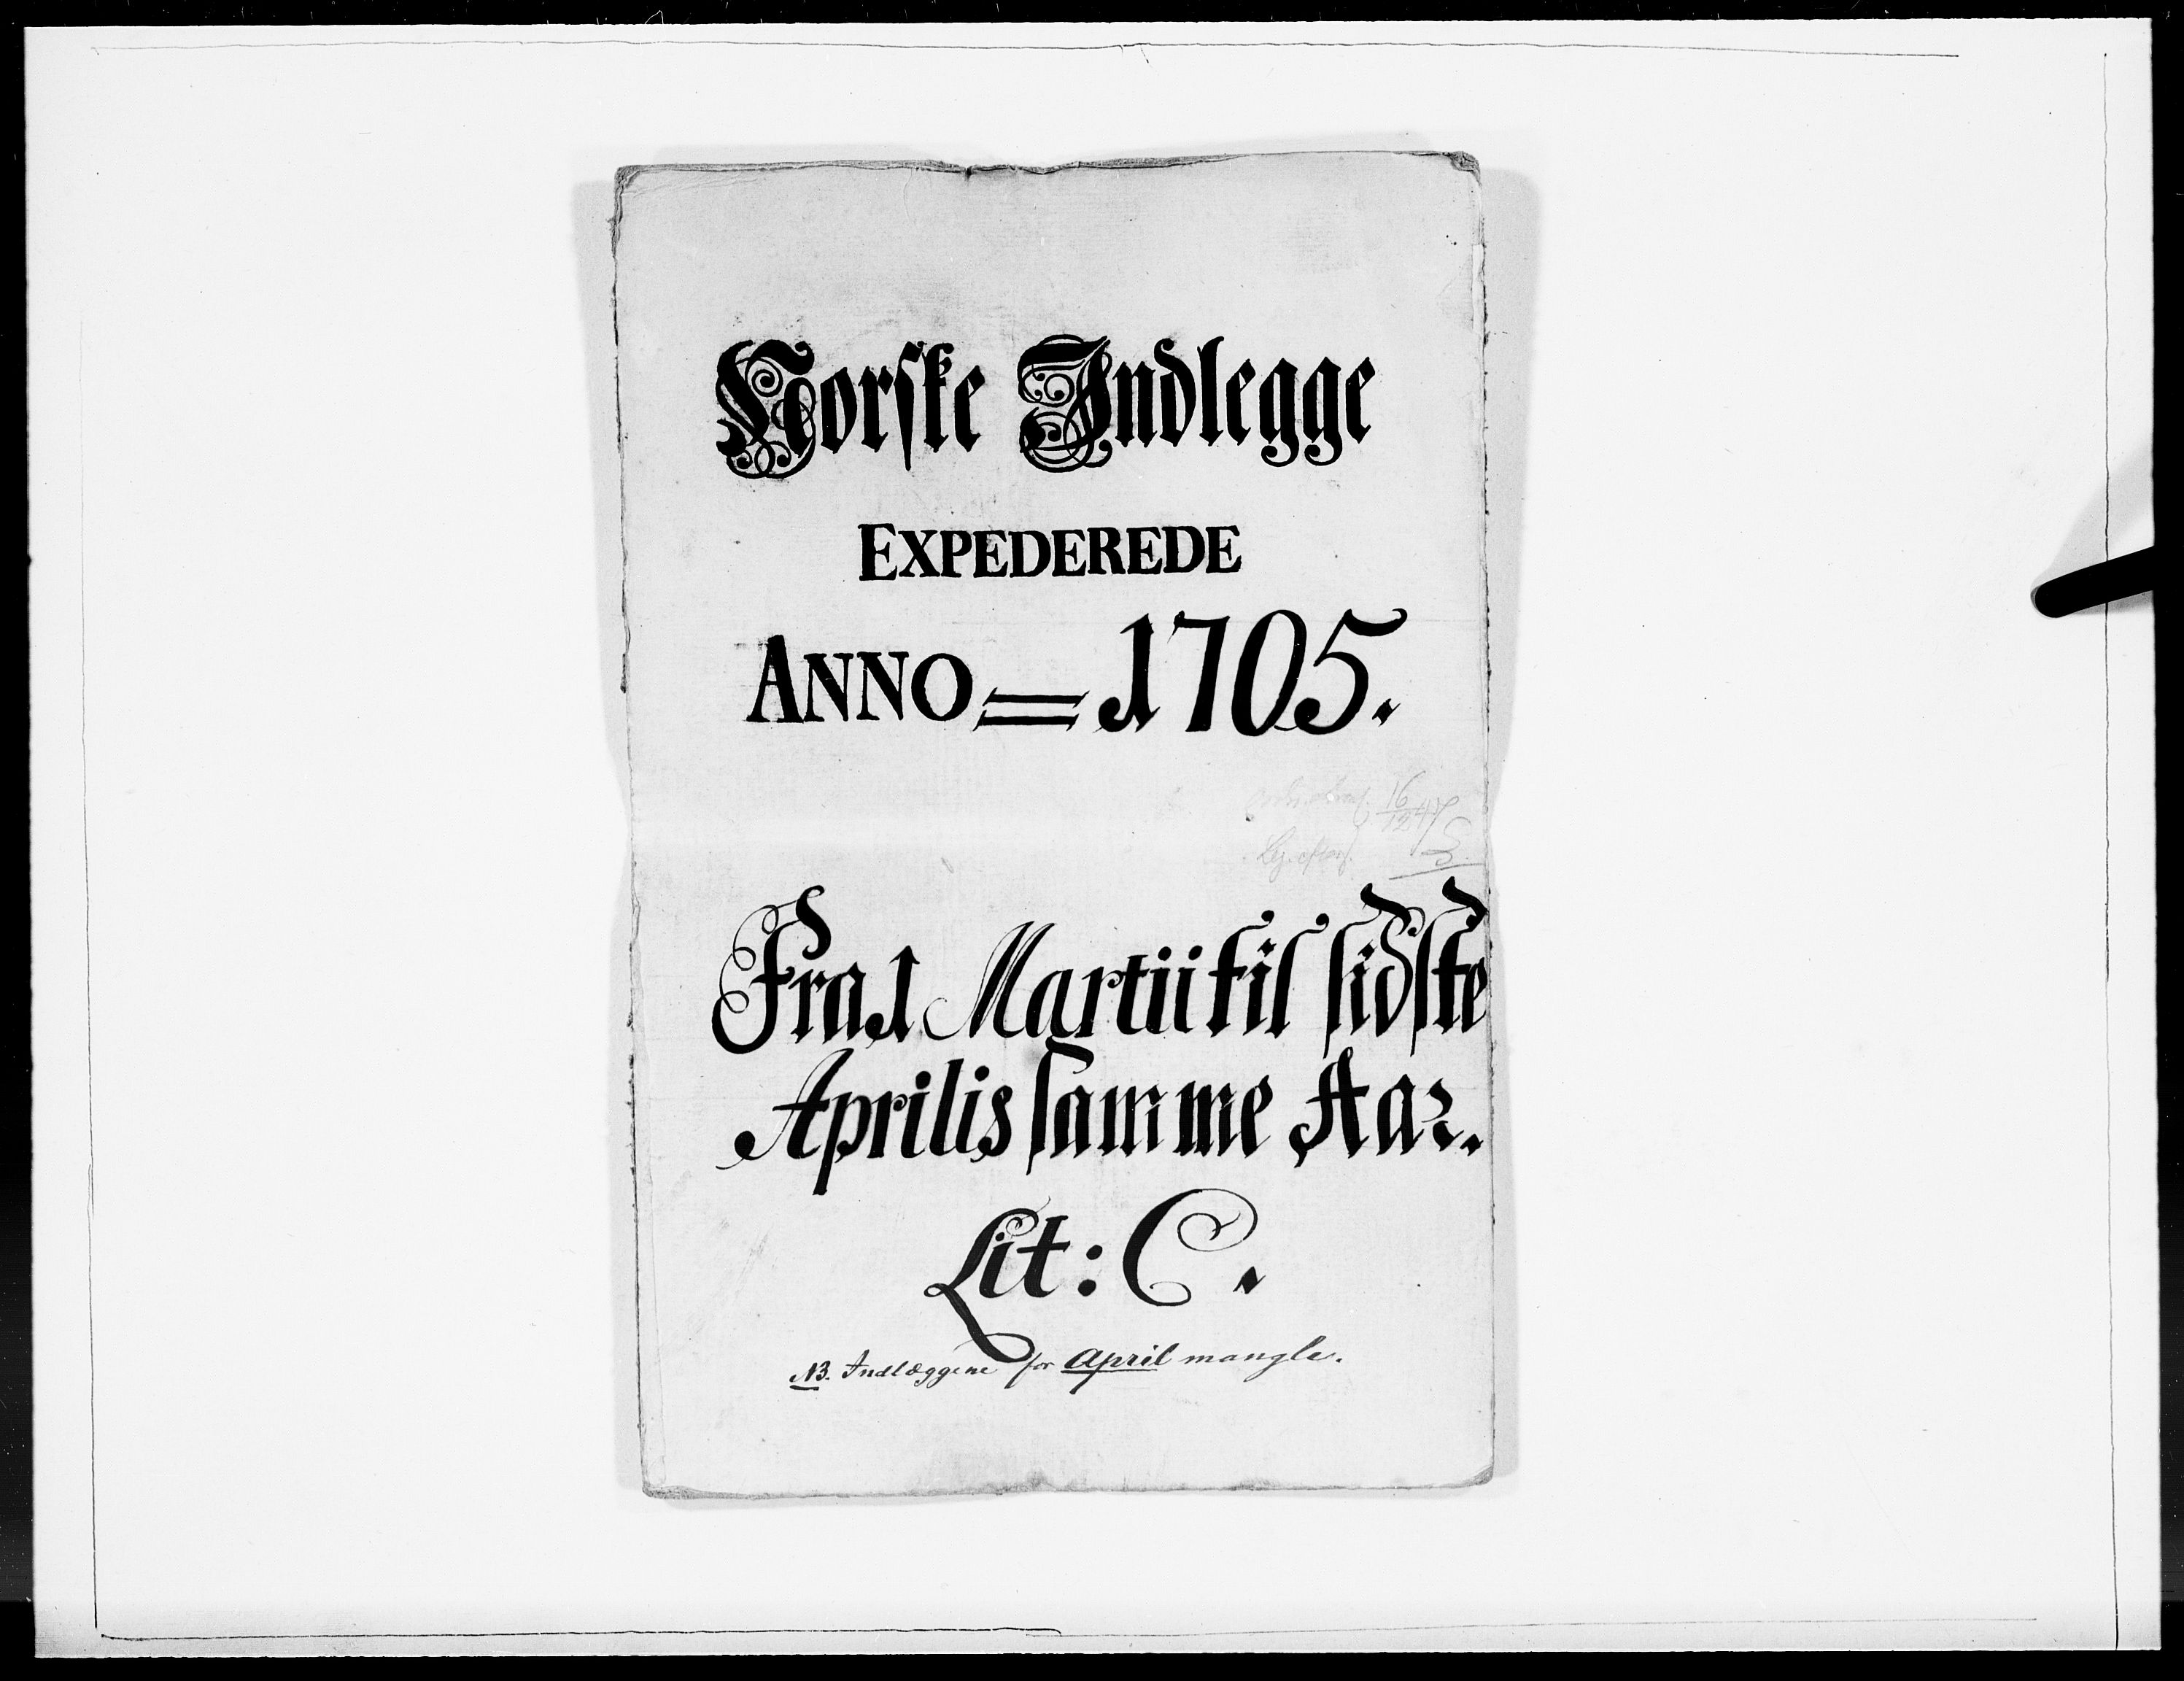 Norske Indlegge
EXPEDEREDE
ANNO = 1705.
16/12 47
Fra 1 Martii til sidste
Aprilis samme Aar.
Lit: C.
NB. Indlæggene for April mangle.